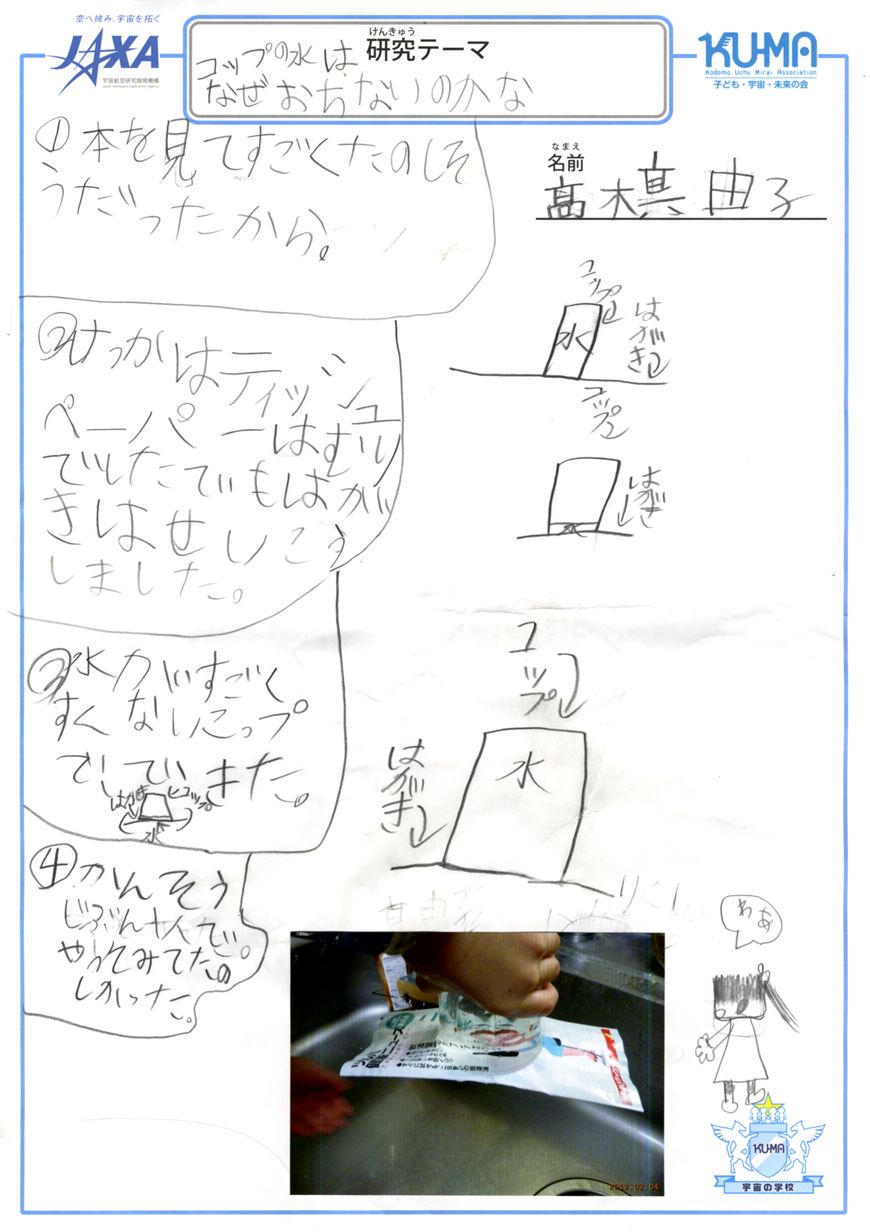 空へ挑み、宇宙を拓く
JAXA
宇宙航空研究開発機構
Japan Aerospace Exploration Agency
けんきゅう
研究テーマ
コップの水は
なぜおちないのかな
KU-MA
Kodomo Uchu Mirai Association
子ども・宇宙・未来の会
なまえ
名前
髙木真由子
①本を見てすごくたのしそ
うだったから。
コップ
水
はがき
②けっかはティッシュ
ペーパーはむり
でしたでもはが
きはせいこう
しました。
コップ
はがき
水
③水がすごく
すくないこっプ
でしていきた。
はがき
コップ
水
コップ
水
はがき
④かんそう
じぶんたちで
やってみてたの
しかった。
わあ
2012.02.04
KU-MA
宇宙の学校